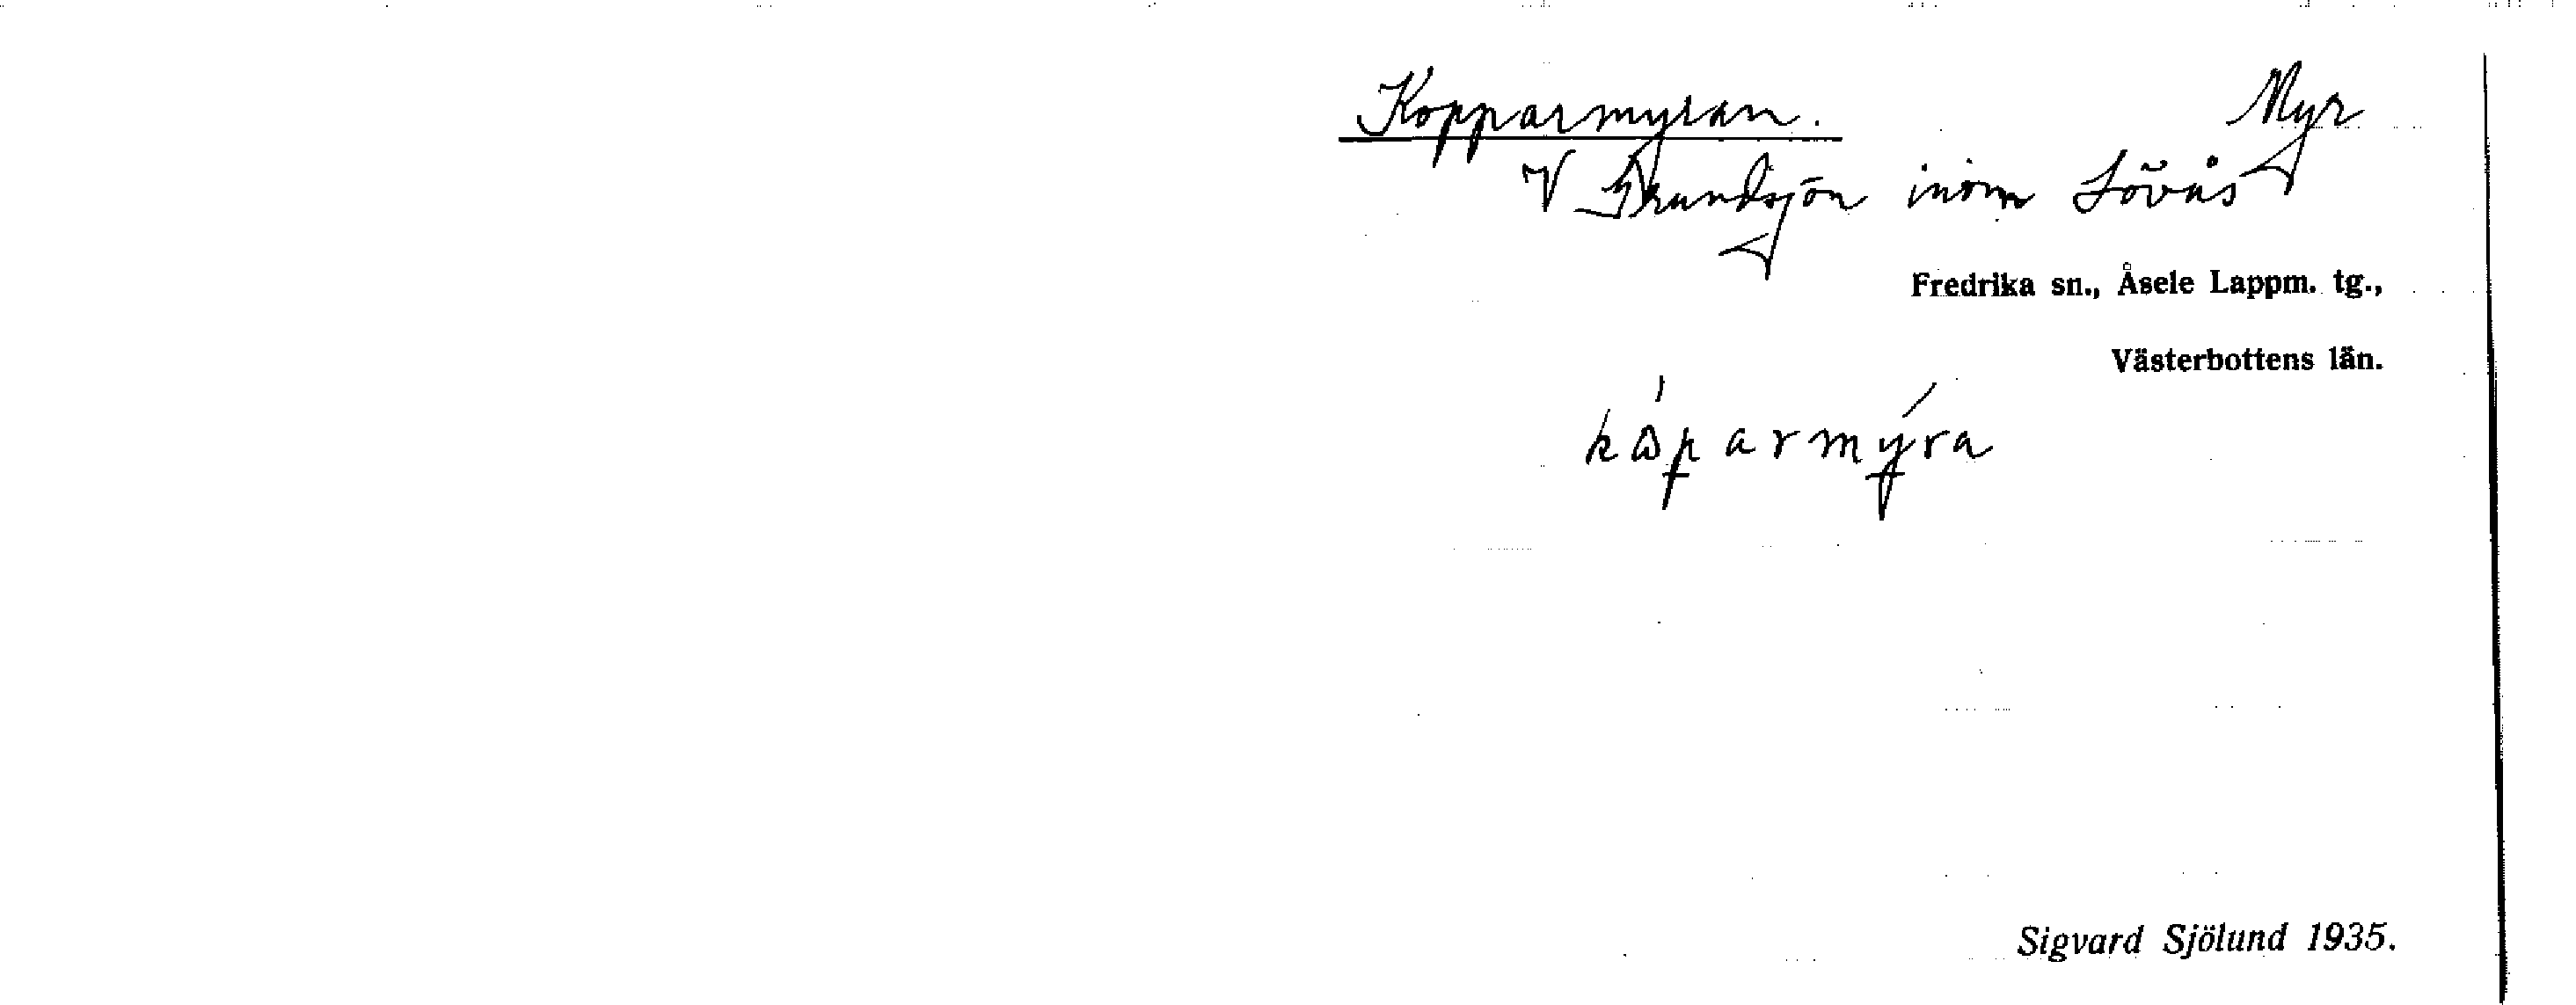 Kopparmyran. Myr
V Grundsjön inom Lövås
Fredrika sn., Åsele Lappm. tg.,
Västerbottens län.
Sigvard Sjölund 1935.